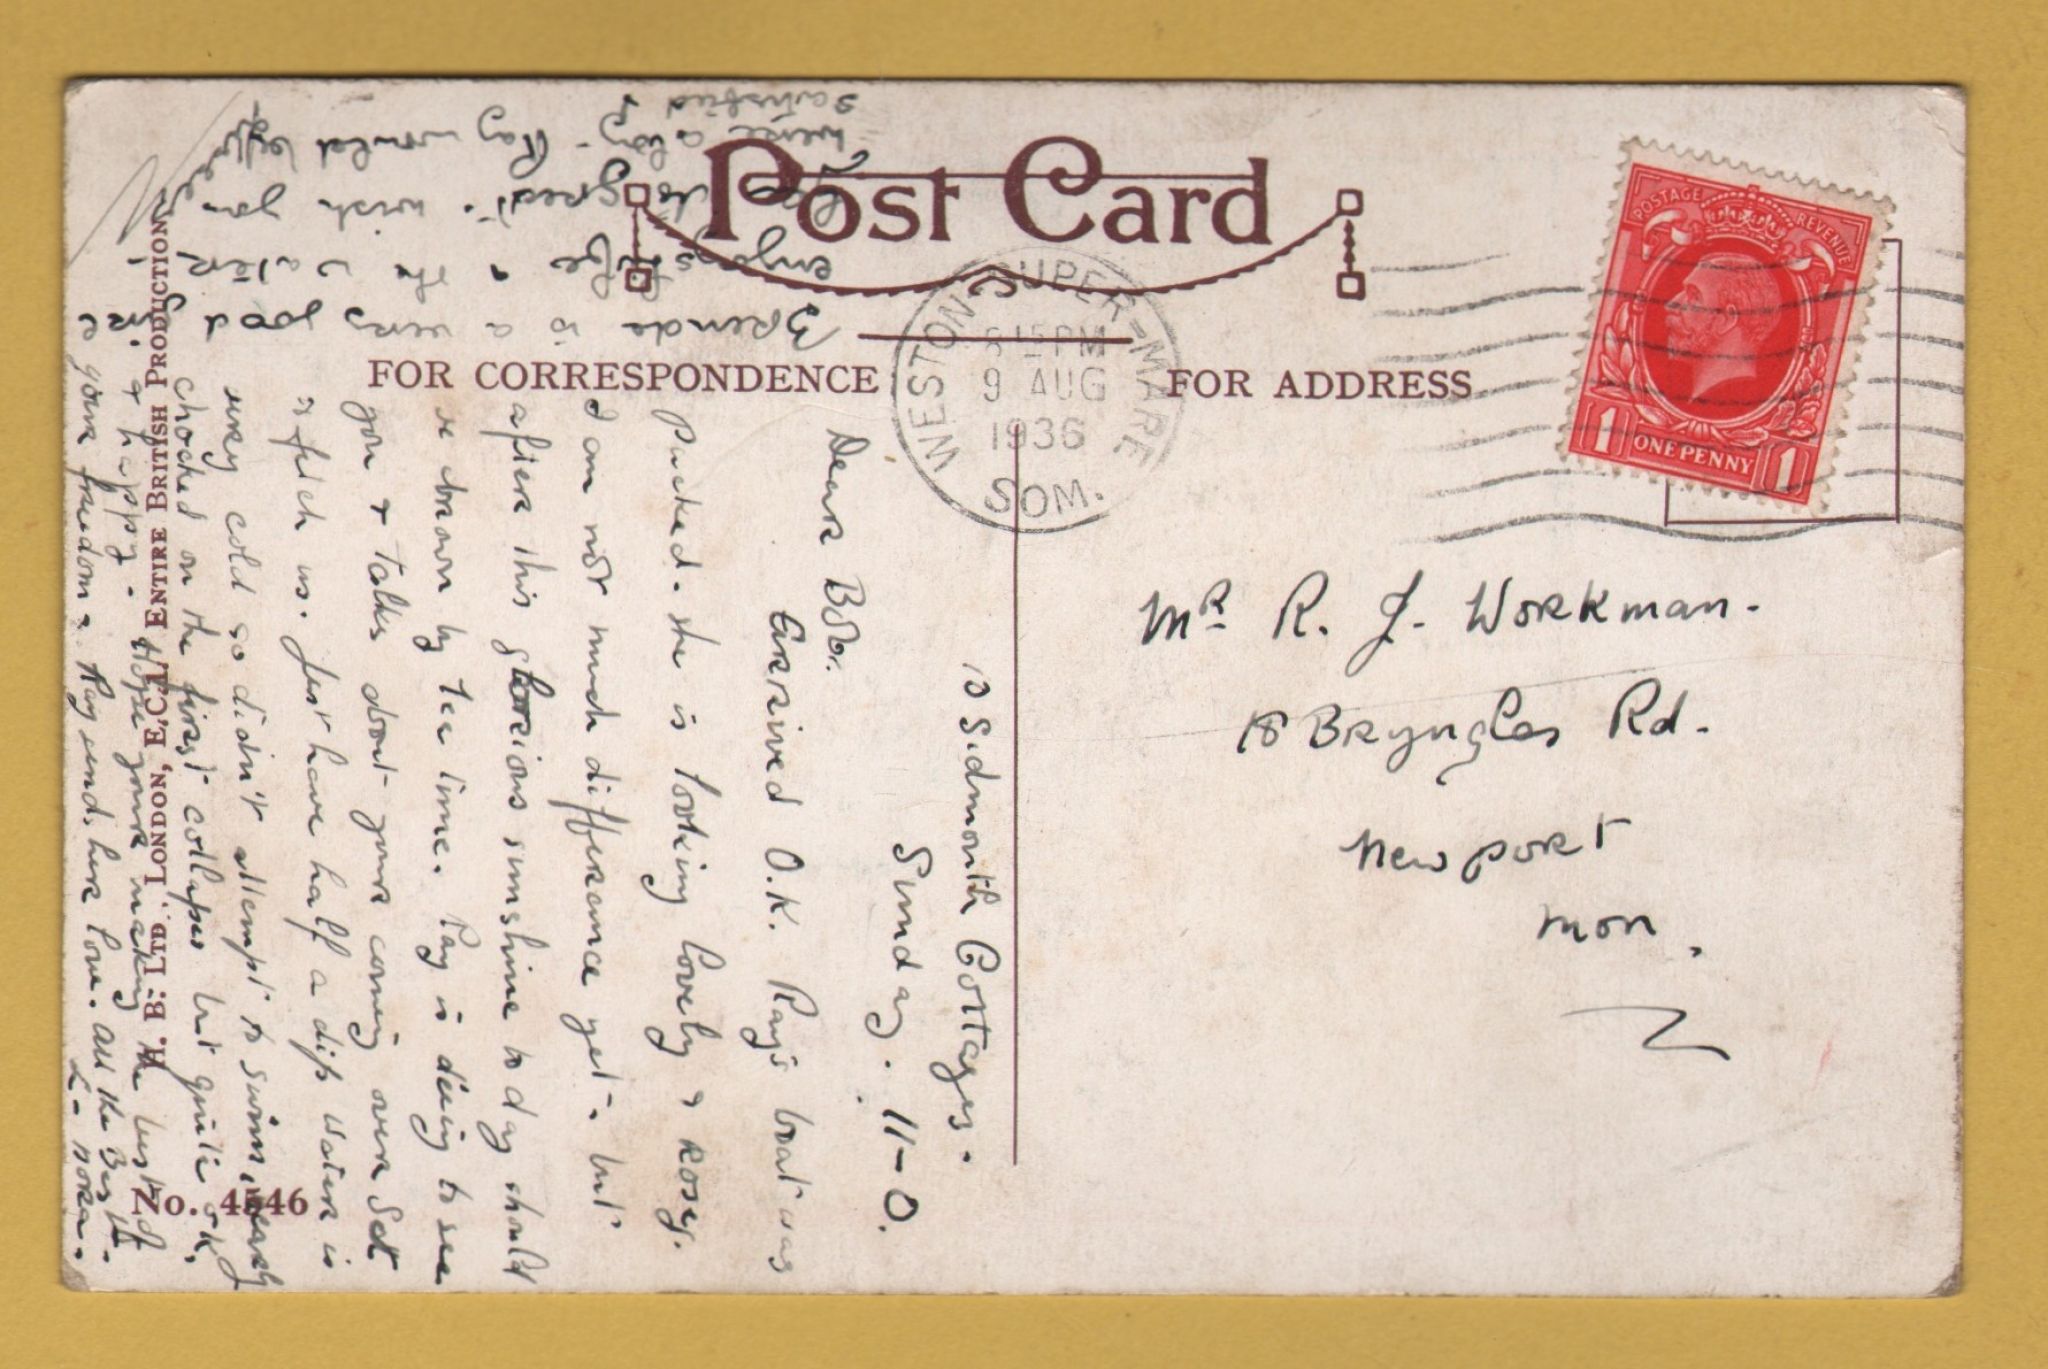 Post Card
FOR CORRESPONDENCE
FOR ADDRESS
WESTON-SUPER-MARE
15 PM
9 AUG
1936
SOM.
POSTAGE REVENUE
1 ONE PENNY 1
Mr. R. J. Workman.
18 Brynglas Rd.
Newport
Mon.
10 Sidmouth Cottages.
Sunday. 11-0.
Dear Bob.
Arrived O.K. Ray's boat was
Packed. She is looking lovely & Rosey.
I am not much difference yet. but
after this glorious sunshine today should
be brown by tea time. Ray is to see
you & talks about your coming over Sat
& fetch us. Just have half a dip water is
very cold so didn't attempt to swim, nearly
chocked on the first collapse but quite O.K,
& happy. Hope your making the best of
your freedom. Ray send, her love. All the Best.
L-nora.
Brenda is a very good
enjoys life & the water.
great. wish you
were along. Ray would
satisfied
H. B. LTD LONDON, E.C.1. ENTIRE BRITISH PRODUCTION
No. 4546